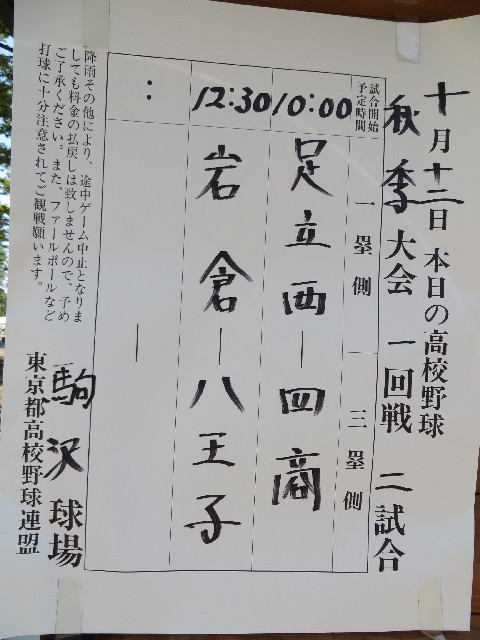 十月十二日 本日の高校野球
秋季大会 一回戦 二試合
試合開始予定時間 一塁側 三塁側
10:00 足立西―四商
12:30 岩倉―八王子
: ―
降雨その他により、途中ゲーム中止となりま
しても料金の払戻しは致しませんので、予め
ご了承ください。また、ファールボールなど
打球に十分注意されてご観戦願います。
駒沢球場
東京都高校野球連盟